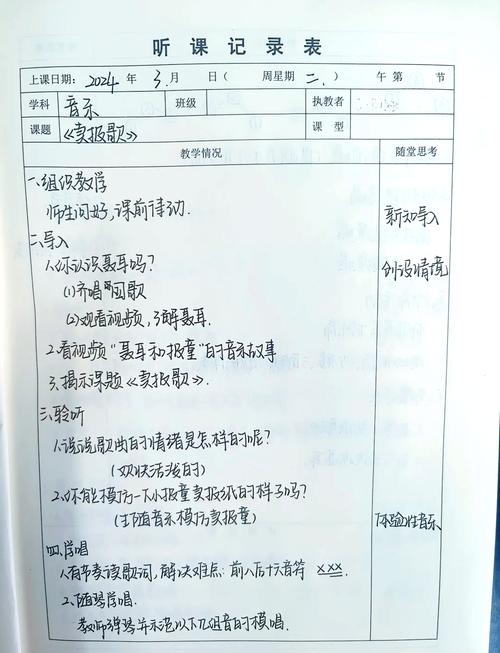 听课记录表
上课日期：2024 年 3 月 日（ 周星期二、） 午第 节
学科 音乐 班级 执教者
课题 《卖报歌》 课型
教学情况 随堂思考
一、组织教学
师生问好，课前律动.
二、导入 新知导入
1、你认识聂耳吗？ 创设情境
(1)齐唱国歌
(2)观看视频，了解聂耳.
2、看视频“聂耳和报童”的音乐故事
3、揭示课题《卖报歌》.
三、聆听
1、说说歌曲的情绪是怎样的呢？
(欢快活泼的)
2、你能模仿一下小报童卖报纸的样子吗？
(生随音乐模仿卖报童) 体验性音乐
四、学唱
1、有节奏读歌词，解决难点：前八后十六音符 XXX.
2、随琴学唱.
教师弹琴并示范以下几组音的模唱.